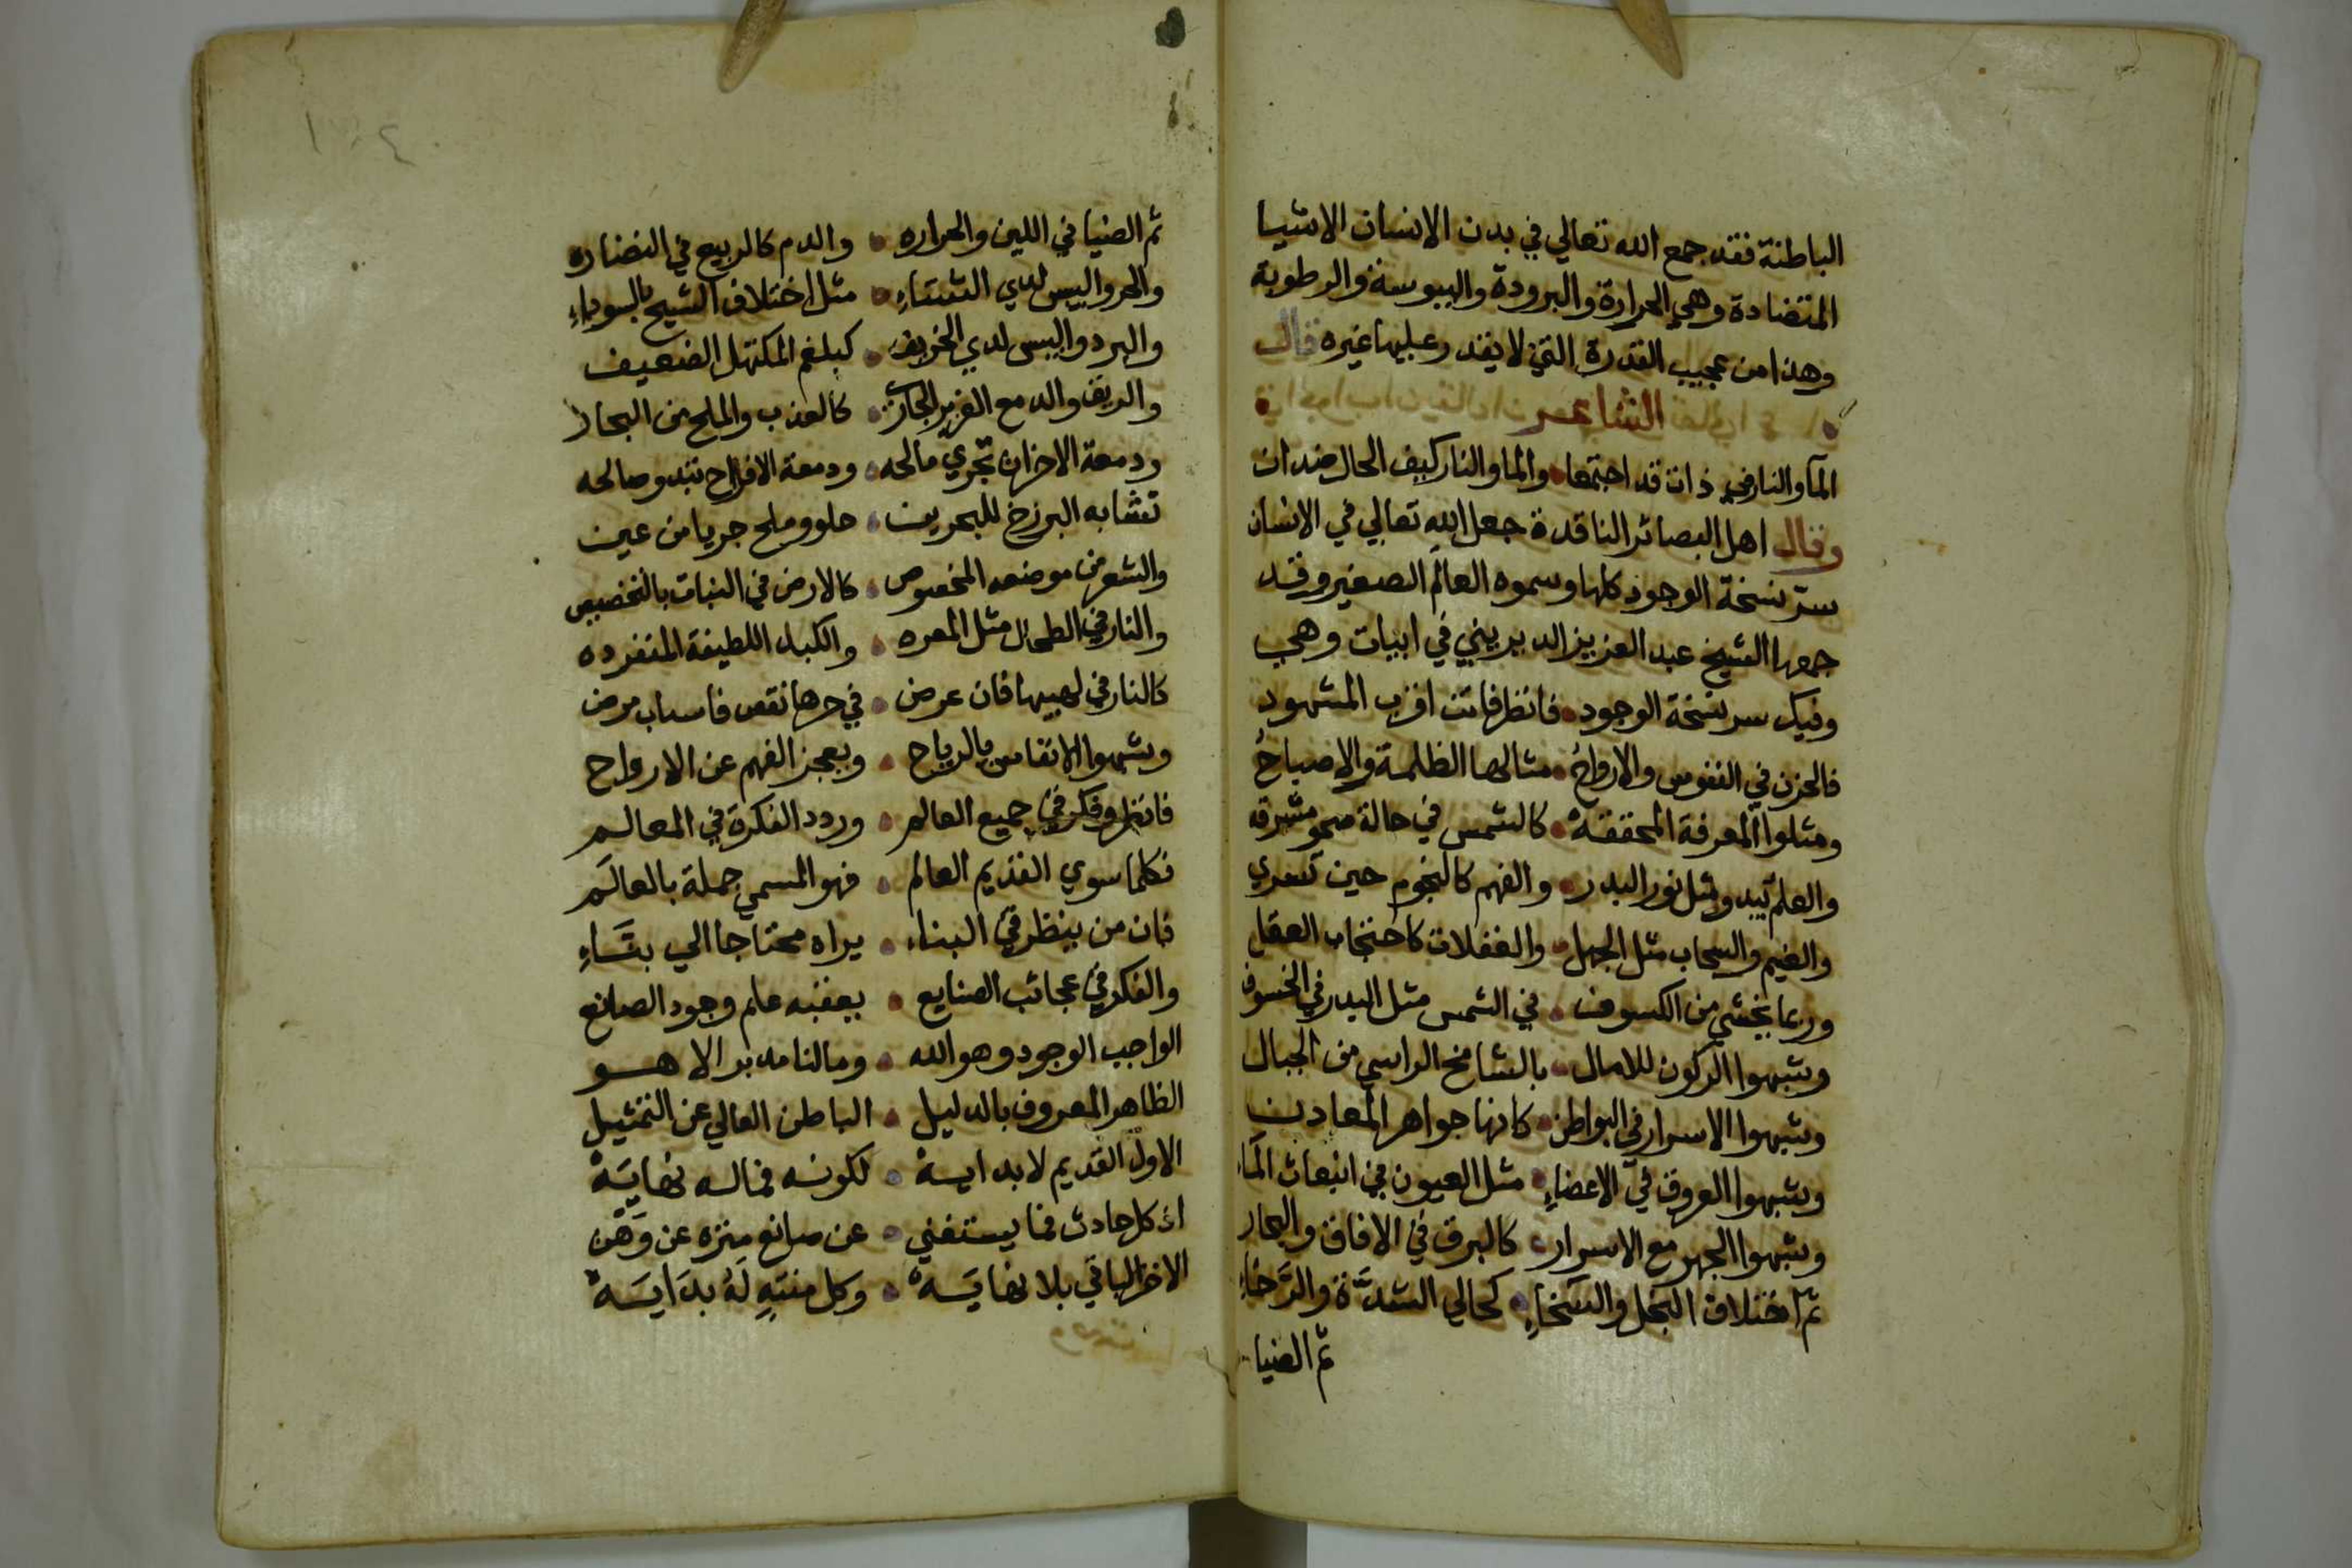 الباطنة فقد جمع الله تعالي في بدن الانسان الاشيا
المتضادة وهي الحرارة والبرودة واليبوسة والرطوبة
وهذا من عجيب القدرة التي لا يقدر عليها غيره قال
الشاعر
المآ والنار في ذات قد اجتمعا والما والنار كيف الحال ضدان
وقال اهل البصائر الناقدة جعل الله تعالي في الانسان
سرّ نسخة الوجود كلها وسموه العالم الصغير وقد
جمعها الشيخ عبد العزيز الديريني في ابيات وهي
وفيك سر نسخة الوجود فانظر فانت اقرب المشهود
فالحزن في النفوس والارواحُ مثالها الظلمة والاصباحُ
ومثلوا المعرفة المحققةْ كالشمس في حالة صحو مشرقه
والعلم يبدو مثل نور البدر والفهم كالنجوم حين تسري
والغيم والسحاب مثل الجهل والغفلات كاحتجاب العقل
وربما يخشي من الكسوف في الشمس مثل البدر في الخسوف
وشبهوا الركون للامال بالشامخ الراسي من الجبال
وشبهوا الاسرار في البواطن كانها جواهر المعادن
وشبهوا العروق في الاعضاءِ مثل العيون في انبعاث المآء
وشبهوا الجهر مع الاسرار كالبرق في الافاق والبحار
ثم اختلاف البخل والسخاءِ كحالي الشدَّة والرَّخاءِ
ثم الضيا
١٠٤
ثم الضيا في اللين والحراره والدم كالربيع في النضاره
والحر واليبس لدي الشتاءِ مثل اختلاف الشيخ بالسوداءِ
والبرد واليبس لدي الخريف كبلغم المكتهل الضعيف
والريق والدمع الغزير الجاري كالعذب والملح من البحار
ودمعة الاحزان تجري مالحه ودمعة الافراح تبدو صالحه
تشابه البرزخ للبحرين حلو وملح جريا من عين
والشعر من موضعه المخصوص كالارض في النبات بالتخصيص
والنار في الطحال مثل المعره والكبد اللطيفة المنفرده
كالنار في لهيبها فان عرض في حرها نقص فاسباب مرض
وشبهوا الانفاس بالرياح ويعجز الفهم عن الارواح
فانظر وفكر في جميع العالم وردد الفكرة في المعالم
فكلما سوي القديم العالم فهو المسمي جملة بالعالَم
فان من ينظر في البناء يراه محتاجا الي بنَّاءِ
والفكر في عجائب الصنايع يعقبه علم وجود الصانع
الواجب الوجود وهو الله وما لنا مدبر الا هو
الظاهر المعروف بالدليل الباطن العالي عن التمثيل
الاول القديم لا بدايةْ لكونه فما له نهايَةْ
اذ كل حادث فما يستغني عن صانع منزه عن وَهْن
الاخر الباقي بلا نهايَةْ وكل منتهٍ لَهُ بدَايَةْ